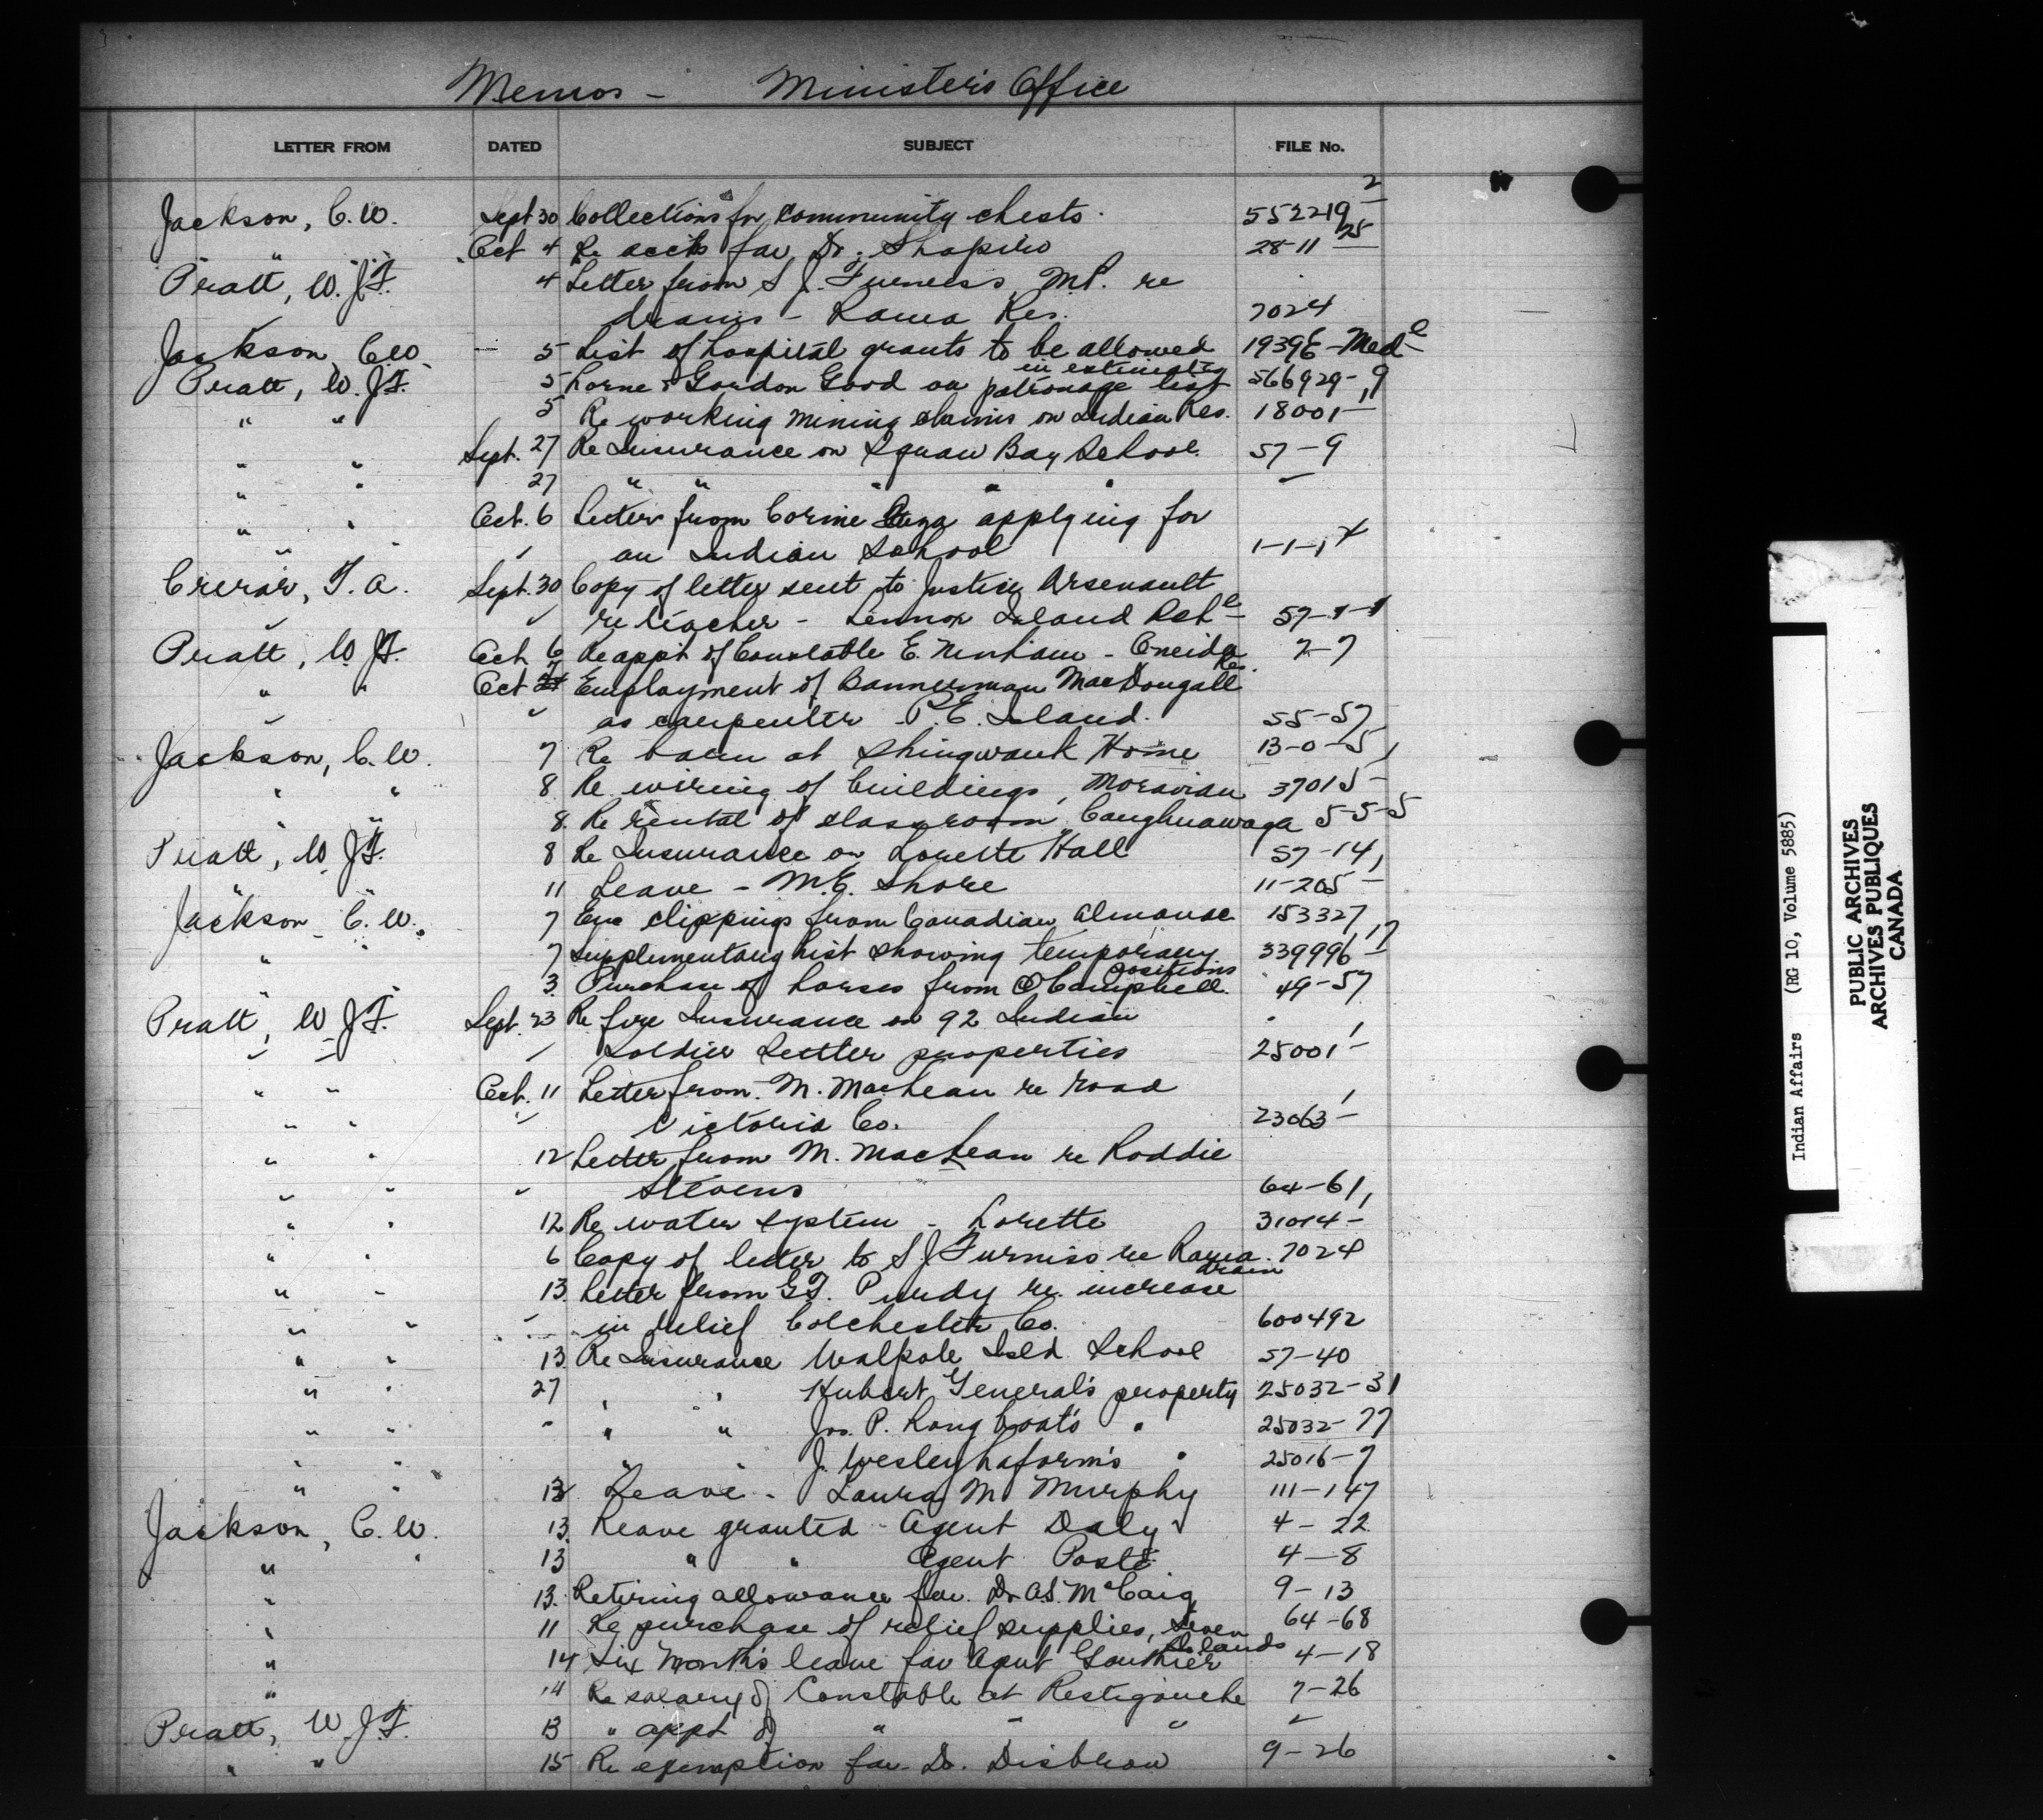 Memos - Minister's Office
LETTER FROM DATED SUBJECT FILE No.
Jackson, C.W. Sept 30 Collections for community chests. 552219-2
" " Oct 4 Re accts for Dr. Shapiro 28-11-25
Pratt, W.J.F. 4 Letter from S J. Furness, M.P. re
drains - Rama Res. 7024
Jackson, C.W. 5 List of hospital grants to be allowed in estimates 1939E-Med
Pratt, W.J.F. 5 Lorne & Gordon Good on patronage list 566929-9
" " 5 Re working mining claims on Indian Res. 18001-1
" " Sept. 27 Re Insurance on Squaw Bay School 57-9
" " 27 " " " " "
" " Oct. 6 Letter from Corine applying for
" " an Indian School 1-1-1
Crerar, T.A. Sept. 30 Copy of letter sent to Justice Arsenault
re teacher - Lennox Island Res 57-1-1
Pratt, W.J.F. Oct 6 Re appt of Constable E. Ninham - Oneida Res. 7-7
" " Oct 7 Employment of Bannerman MacDougall
as carpenter P.E. Island. 55-57
Jackson, C.W. 7 Re barn at Shingwauk Home 13-0-5
" " 8 Re wiring of buildings, Moravian 37015-1
" " 8. Re rental of classroom, Caughnawaga 5-5-5
Pratt, W.J.F. 8 Re Insurance on Lorette Hall 57-14
" " 11 Leave - M.E. Shore 11-205-1
Jackson C.W. 7 Enc clippings from Canadian Almanac 153327
" " 7 Supplementary list showing temporary positions 339996-17
3. Purchase of horses from Campbell. 49-57
Pratt, W.J.F. Sept. 23 Re fire Insurance on 92 Indian
Soldier Settler properties 25001-1
" " Oct. 11 Letter from M. MacLean re road
" " Victoria Co. 23063-1
" " 12 Letter from M. MacLean re Roddie
" " " Stevens 64-61
" " 12 Re water system - Lorette 31014-1
" " 6 Copy of letter to S J Furniss re Rama drain 7024
" " 13. Letter from G.T. Purdy re. increase
" " in relief Colchester Co. 600492
" " 13. Re Insurance Walpole Isld School 57-40
" " 27 " " Hubert General's property 25032-31
" " - " " Jos. P. Long boat's " 25032-77
" " " " J. Wesley Laform's " 25016-7
" " 13 Leave - Laura M Murphy 111-147
Jackson, C.W. 13. Leave granted - Agent Daly 4-22
" " 13 " " Agent Poste 4-8
" 13. Retiring allowance for Dr A.S. McCaig 9-13
" 11 Re purchase of relief supplies, Seven Islands 64-68
" 14 Six Month's leave for Agent Gauthier 4-18
" 14 Re salary of Constable at Restigouche 7-26
Pratt, W.J.F. 13 " appt of " " " "
" " 15 Re exemption for Dr. Disbrow 9-26
Indian Affairs (RG 10, Volume 5885)
PUBLIC ARCHIVES
ARCHIVES PUBLIQUES
CANADA